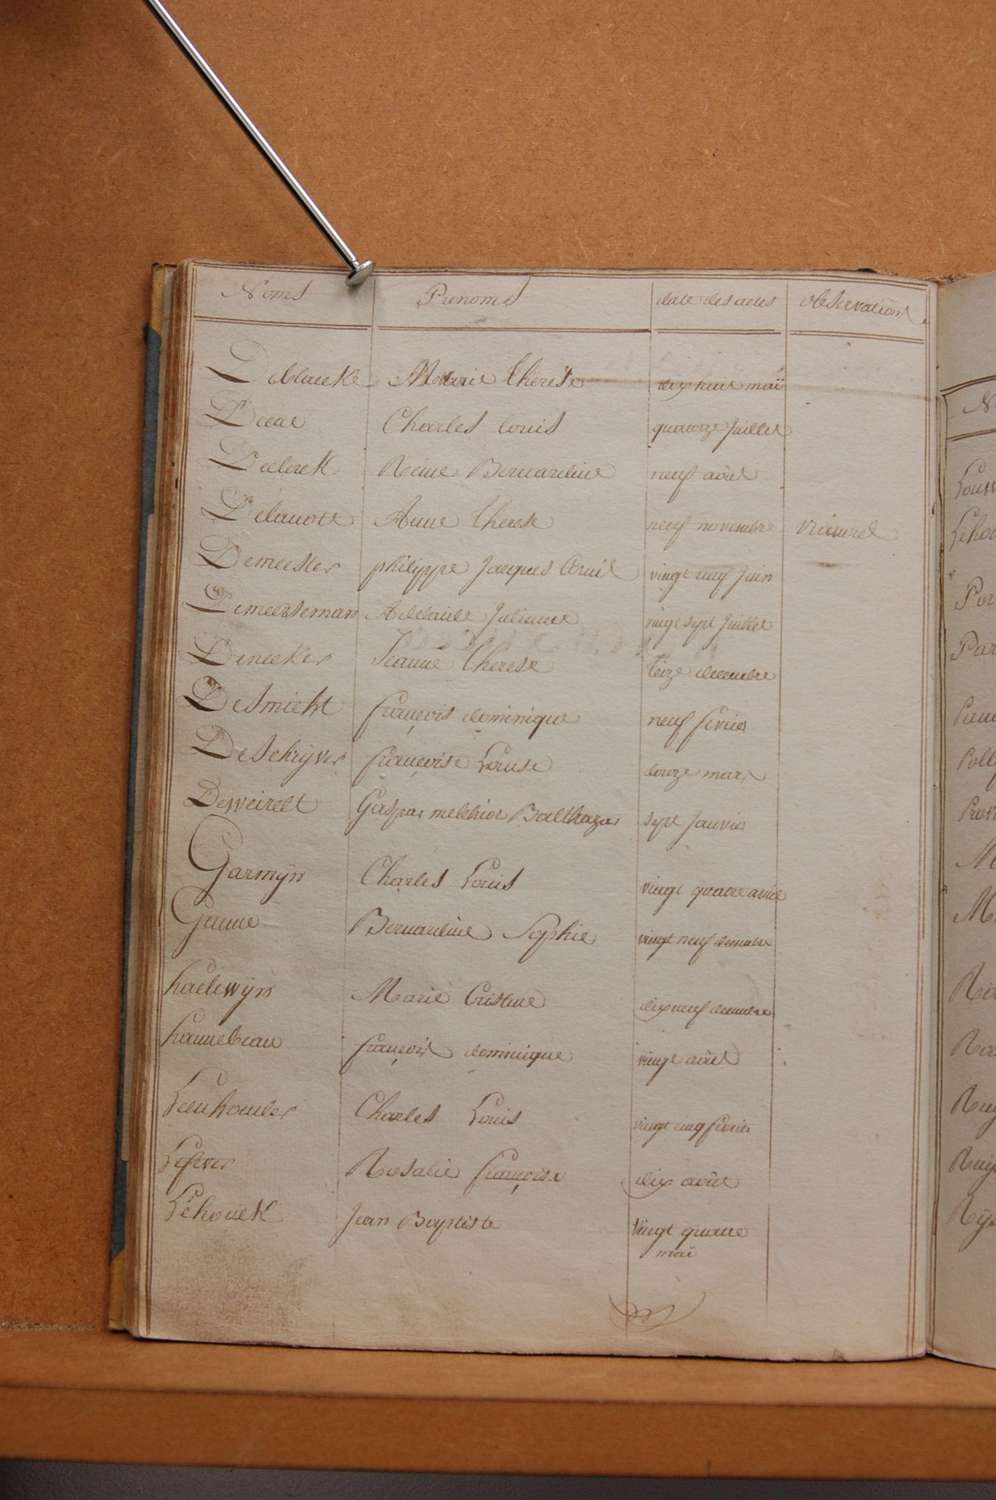 Noms Prenoms date des actes observations
Deblaucke Marie Therese dix huit maï
Charles Louis quatorze Juillet
Declerck Reine Bernardine neuf août
Delanote Anne Therese neuf novembre
Demeester philippe Jacques Louis vingt neuf Juin
Demeesseman Adelaide Juliaene vingt sept Juillet
Deneeker Jeanne Therese treize decembre
DeSmicht françois dominique neuf fevrier
DeSchrijver françoise Louise douze mars
Deweirelt Gaspar melchior Balthazar sept Janvier
Garmijn Charles Louis vingt quatre avril
Bernardine Sophie vingt neuf decembre
haelewijn Marie Cristine dix neuf decembre
hannebeau françois dominique vingt août
Leenhouder Charles Louis vingt cinq fevrier
Lefever Rosalie françoise dix août
Lehouck Jean Baptiste vingt quatre
maï
N
Par